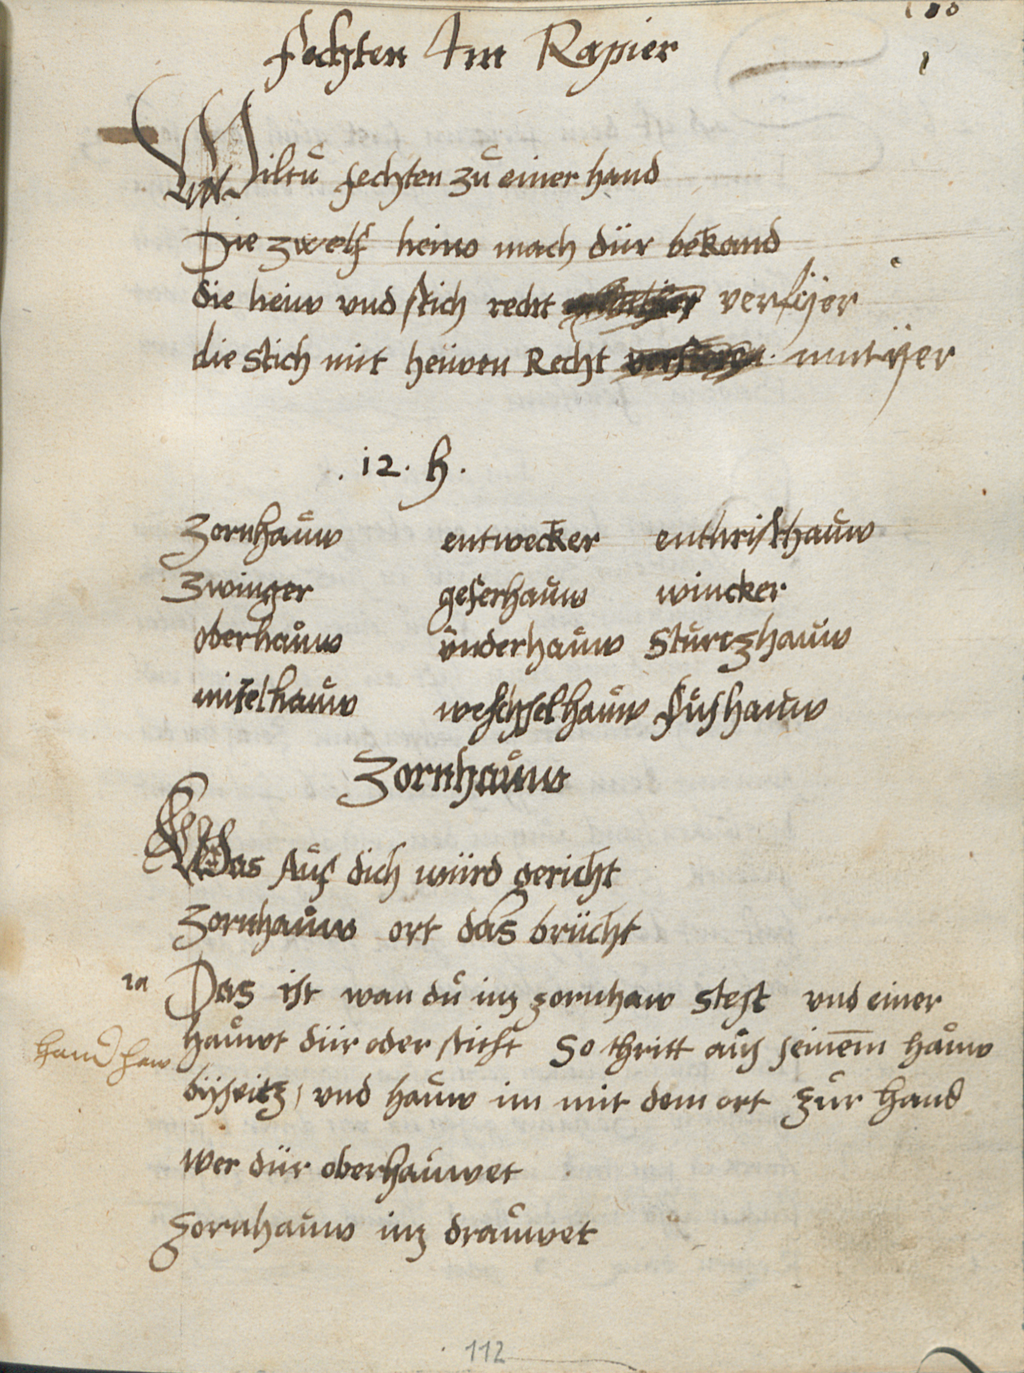 fechten Im Rapier
Wiltů fechten zů einer hand
Die zwelf heiw mach dür bekand
die heiw vnd stich recht versÿer
die stich mit heüwen Recht mutÿer
. 12 . h .
Zornhaůw entwecker enthristhaůw
Zwinger geferhaůw wincker
oberhaůw vnderhaůw Stůrtzhaůw
mitelhaůw weschselhaůw fůshaůw
Zornhaůw
Was Aůf dich würd gericht
Zornhaůw ort das brücht
Das ist wan dů im zornhaw stest vnd einer
haůwt dür oder sticht So thritt aůs seinem haůw
bÿseitz, vnd haůw im mit dem ort zůr hand
hand haw
wer dür oberhaůwet
Zornhaůw im draůwet
112